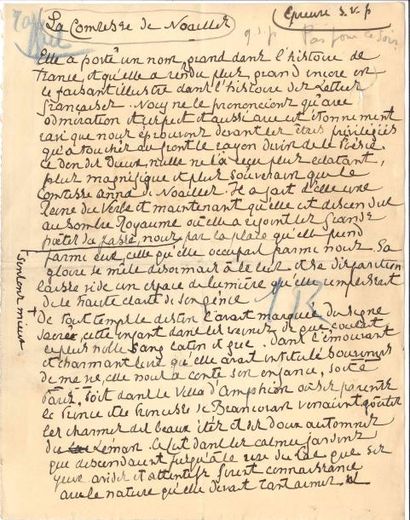 La Comtesse de Noailles
Epreuve S.V.P
Pas pour ce soir
Elle a porté un nom grand dans l'histoire de
France et qu'elle a rendu plus grand encore en
le faisant illustre dans l'histoire des Lettres
françaises. Nous ne le prononcions qu'avec
admiration et respect et aussi avec cet étonnement
ravi que nous éprouvons devant les êtres privilégiés
qu'a touchés au front le rayon divin de la Poésie.
Ce don des Dieux nulle ne l'a reçu plus éclatant,
plus magnifique et plus souverain que la
Comtesse Anna de Noailles. Il a fait d'elle une
Reine du Verbe et maintenant qu'elle est descendue
au Sombre Royaume où elle a rejoint les Grands
poètes du passé, nous par la place qu'elle prend
parmi eux, celle qu'elle occupait parmi nous. Sa
gloire se mêle désormais à la leur et sa disparition
laisse vide un espace de lumière qu'elle emplissait
de la haute clarté de son génie.
De tout temps le destin l'avait marquée du signe
sacré, cette enfant dans les veines de qui coulait
le plus noble sang latin et grec. Dans l'émouvant
et charmant livre qu'elle avait intitulé Souvenirs
de ma vie, elle nous a conté son enfance, soit à
Paris, soit dans la Villa d'Amphion où ses parents
le Prince et la Princesse de Brancovan venaient goûter
les charmes des beaux étés et des doux automnes
du Léman. Ce fut dans les calmes jardins
qui descendaient jusqu'à la rive du Lac que ses
yeux avides et attentifs firent connaissance
avec la nature qu'elle devait tant aimer et